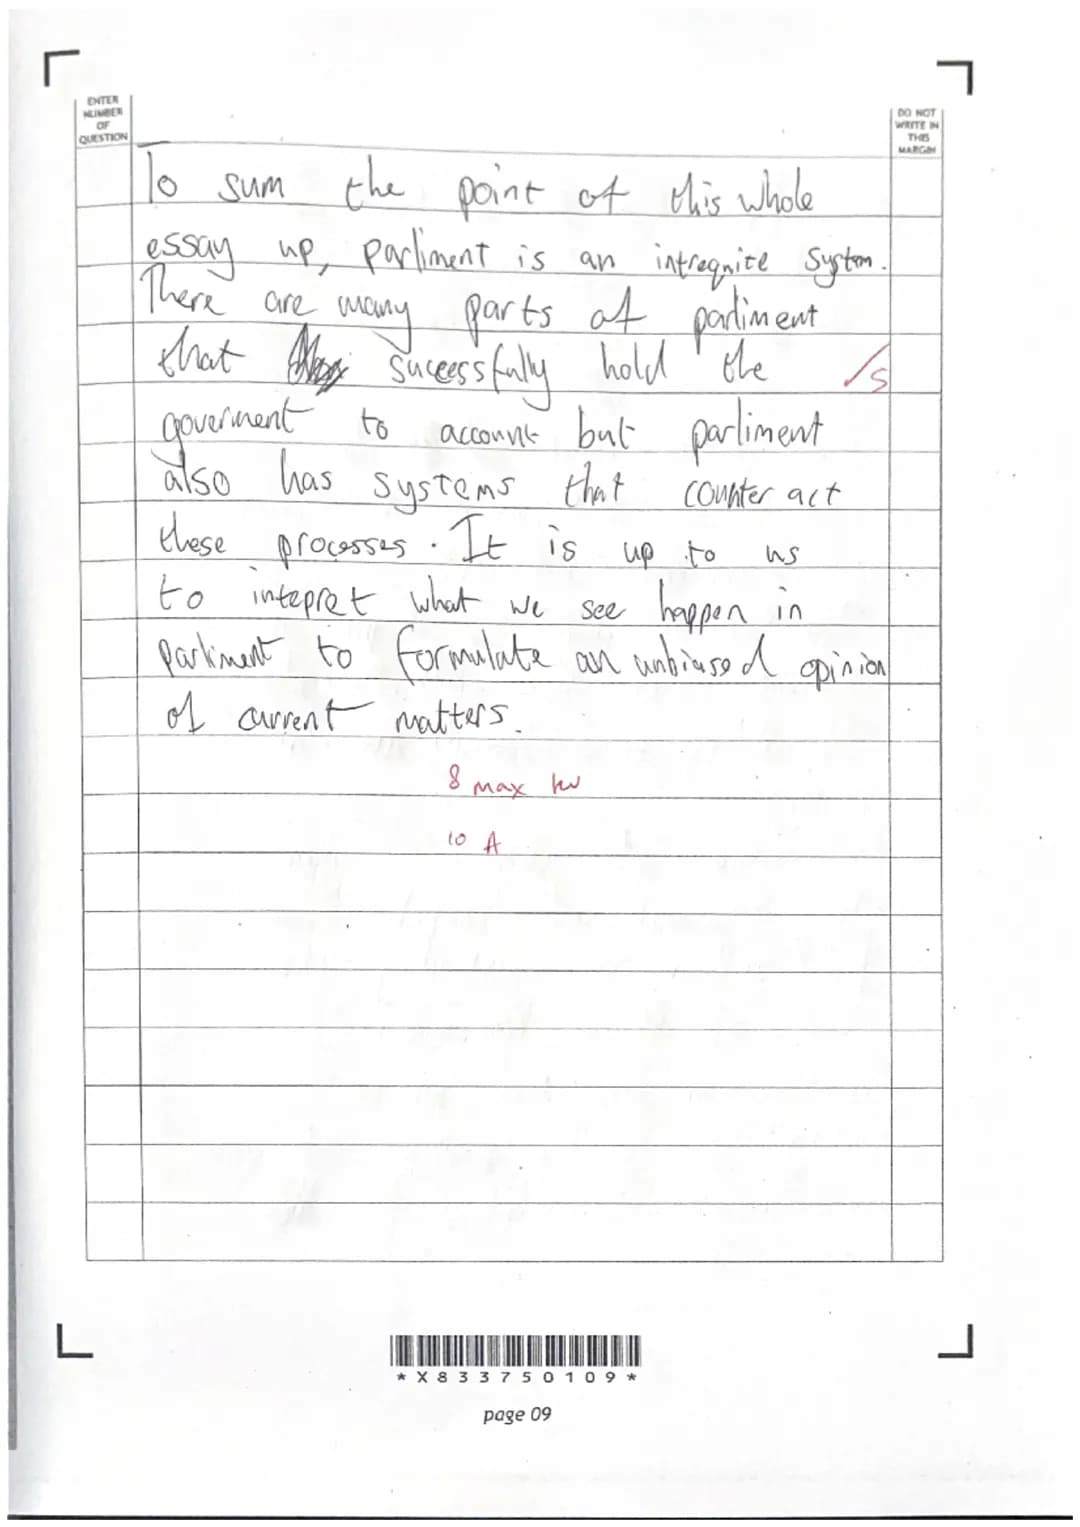 ENTER
NUMBER
OF
QUESTION
DO NOT
WRITE IN
THIS
MARGIN
To sum the point of this whole
essay up, parliment is an intreqnite system.
There are many parts of parliment
that sucessfully hold the /s
goverment to account but parliment
also has systems that counter act
these processes. It is up to us
to intepret what we see happen in
parliment to formulate an unbiased opinion
of current matters.
8 max
10 A
*X833750109*
page 09